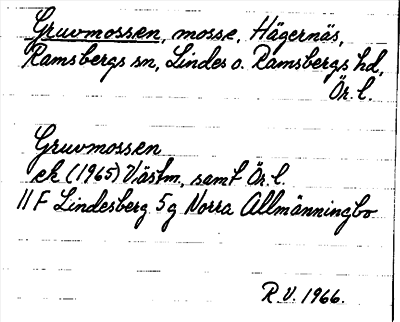 Gruvmossen, mosse, Hägernäs,
Ramsbergs sn, Lindes o. Ramsbergs hd,
Ör. l.
Gruvmossen
ek (1965) Västm., samt Ör. l.
11 F Lindesberg 5g Norra Allmänningbo
R.V. 1966.